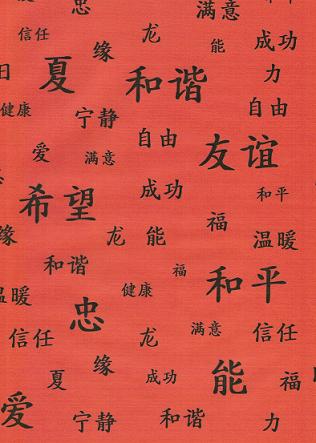 忠
满意
信任
龙
缘
能
成功
夏
和谐
力
自由
健康
宁静
自由
爱
满意
友谊
成功
和平
希望
福
缘
龙
能
温暖
和谐
福
和平
温暖
健康
忠
信任
龙
满意
信任
缘
夏
成功
能
福
爱
宁静
和谐
力